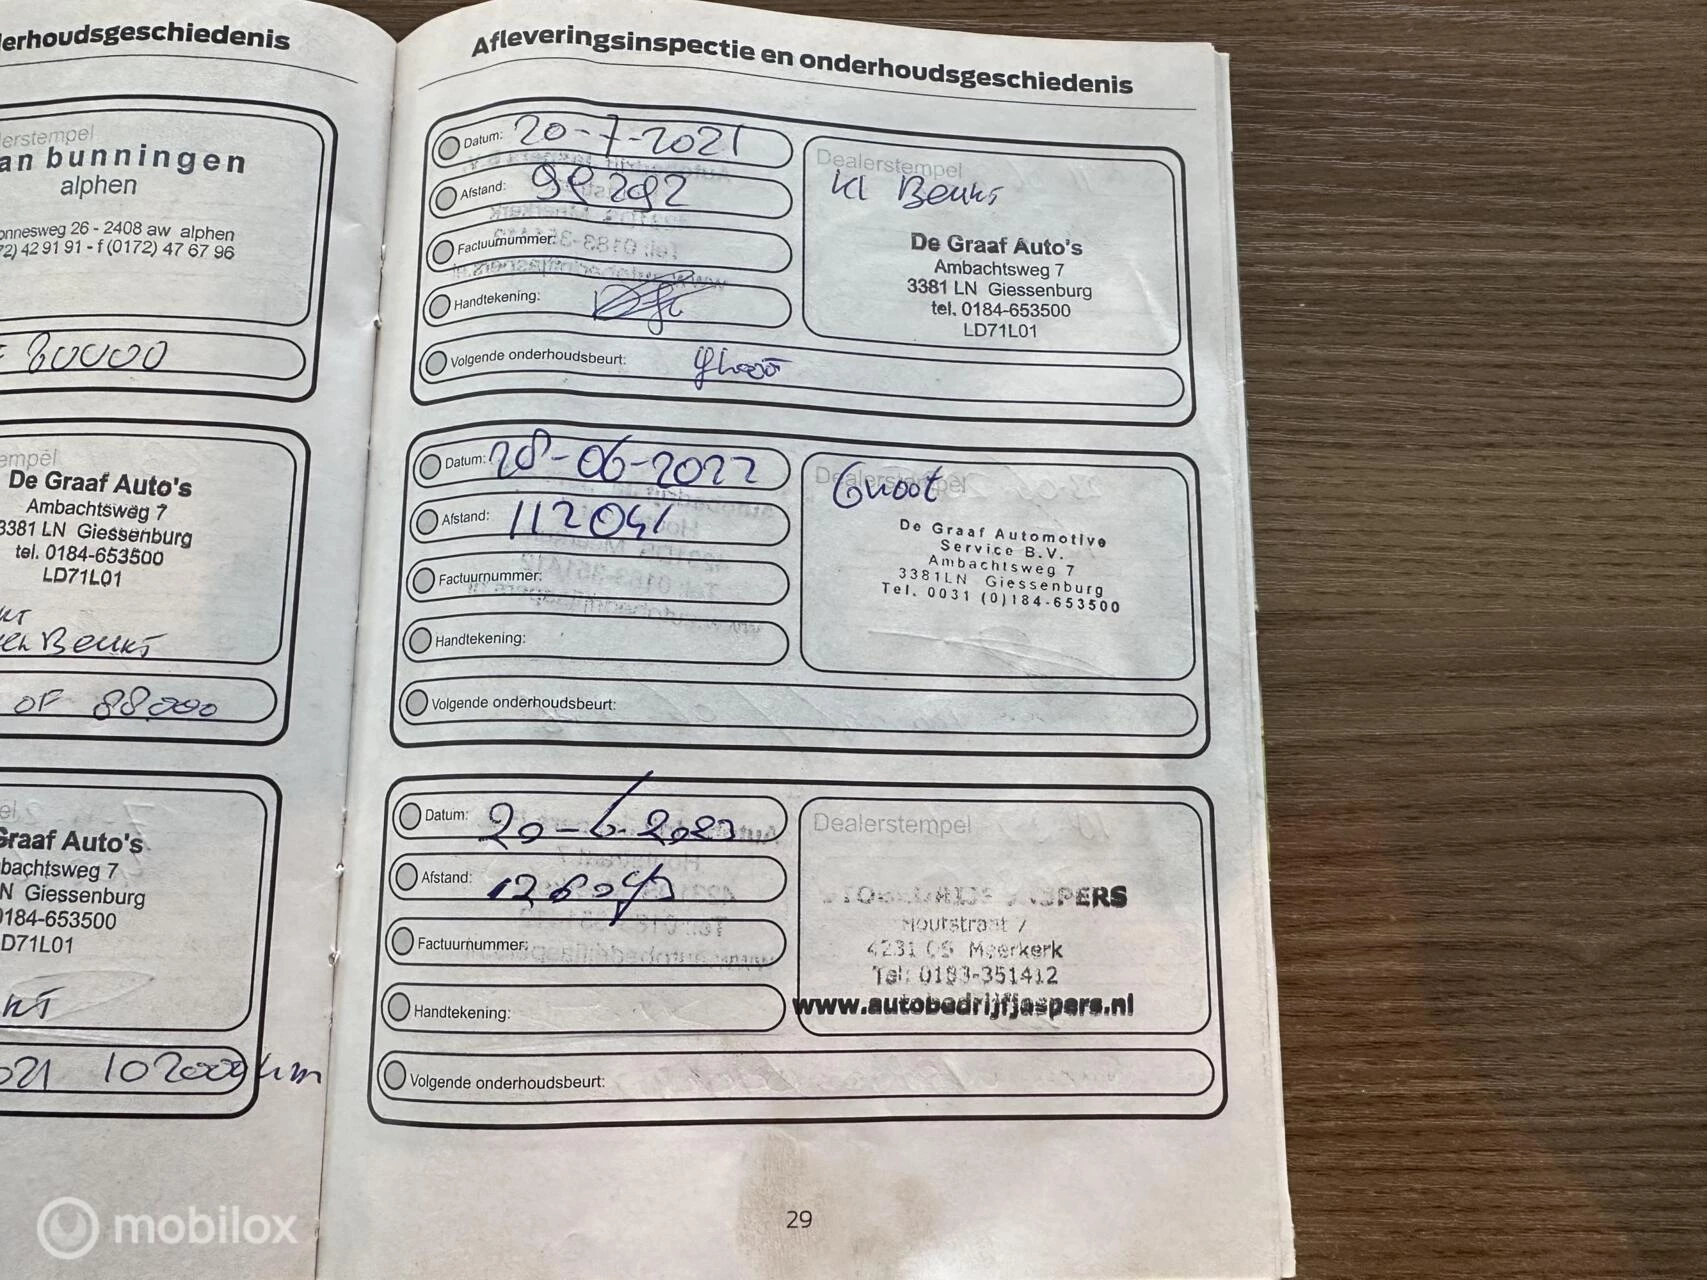 erhoudsgeschiedenis
erstempel
an bunningen
alphen
onnesweg 26 - 2408 aw alphen
72) 42 91 91 - f (0172) 47 67 96
80000
empel
De Graaf Auto's
Ambachtsweg 7
3381 LN Giessenburg
tel. 0184-653500
LD71L01
Beurt
OF 88.000
el
Graaf Auto's
bachtsweg 7
N Giessenburg
0184-653500
D71L01
021 102000 km
Afleveringsinspectie en onderhoudsgeschiedenis
Datum: 20-7-2021
Afstand: 99292
Factuurnummer:
Handtekening:
Volgende onderhoudsbeurt: groot
Dealerstempel
kl Beurt
De Graaf Auto's
Ambachtsweg 7
3381 LN Giessenburg
tel. 0184-653500
LD71L01
Datum: 28-06-2022
Afstand: 112041
Factuurnummer:
Handtekening:
Volgende onderhoudsbeurt:
Dealerstempel
Groot
De Graaf Automotive
Service B.V.
Ambachtsweg 7
3381LN Giessenburg
Tel. 0031 (0)184-653500
Datum: 20-6-2023
Afstand:
Factuurnummer:
Handtekening:
Volgende onderhoudsbeurt:
Dealerstempel
JASPERS
Houtstraat 7
4231 Meerkerk
Tel: 0183-351412
www.autobedrijfjaspers.nl
29
mobilox